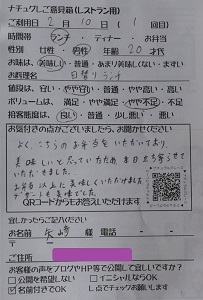 ナチュグしご意見箱(レストラン用)
ご利用日 2月10日(1回目)
時間帯 ランチ・ディナー・お弁当
性別 女性・男性 年齢 20才代
お味は、美味しい・普通・あまり美味しくない・まずい
お料理名 日替りランチ
値段は、安い・やや安い・普通・やや高い・高い
ボリュームは、満足・やや満足・やや不足・不足
接客態度は、良い・普通・悪い
お気付きの点がございましたら、お聞かせください
よく、こちらのお弁当をいただいており
美味しいと思っていたため本日立寄らせて
いただきました。
お弁当以上に美味しくいただけました
デザートも美味でした。
QRコードからもお答えいただけます
宜しかったらご記入ください
お名前 矢崎 様 電話 - -
〒
ご住所
お客様の声をブログやHP等で公開して宜しいですか?
□公開を希望しない □イニシャルならOK
☑名前付きでOK L点でチェックお願いします